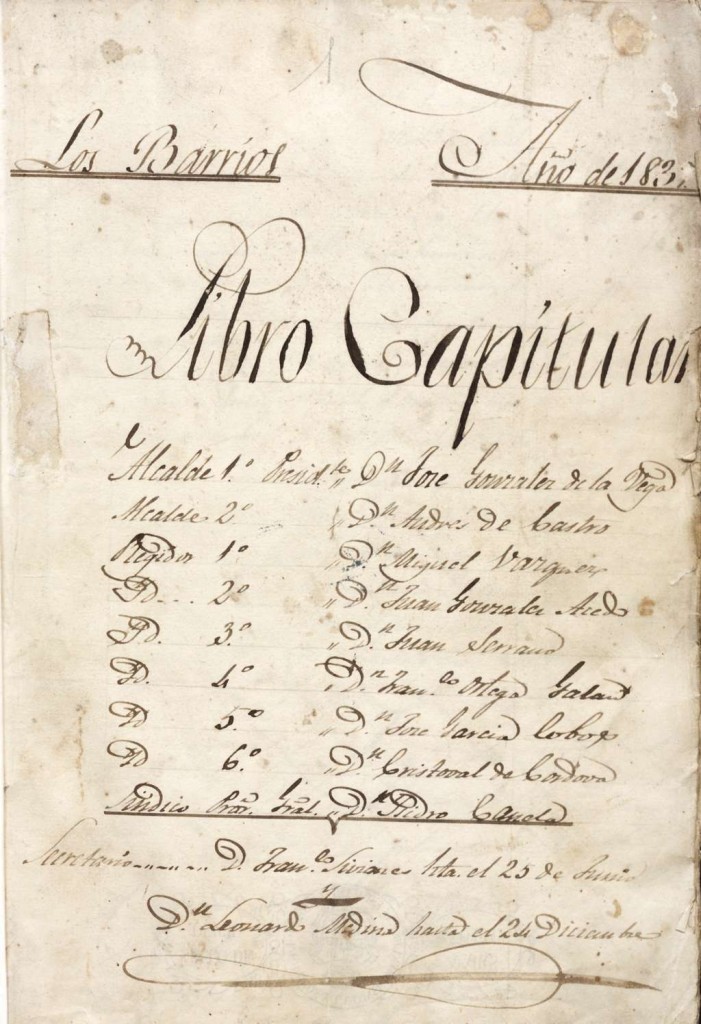 Los Barrios Año de 183
Libro Capitular
Alcalde 1.º Presid.te „ D.n Jose Gonzalez de la Vega
Alcalde 2º „ D.n Andres de Castro
Regidor 1º „ D.n Miguel Vazquez
Yd... 2º „ D.n Juan Gonzalez
Yd. 3.º „ D.n Juan Serrano
Yd. 4º „ D.n Fran.co Ortega Galan
Yd 5.º „ D.n Jose Garcia Cobos
Yd 6.º „ D.n Cristoval de Cordova
Sindico Pror. Gral. „ D.n Ysidro
Secretario....... D. Fran.co hta. el 25 de Junio
y
D.n Leonardo Medina hasta el 24 Diciembre